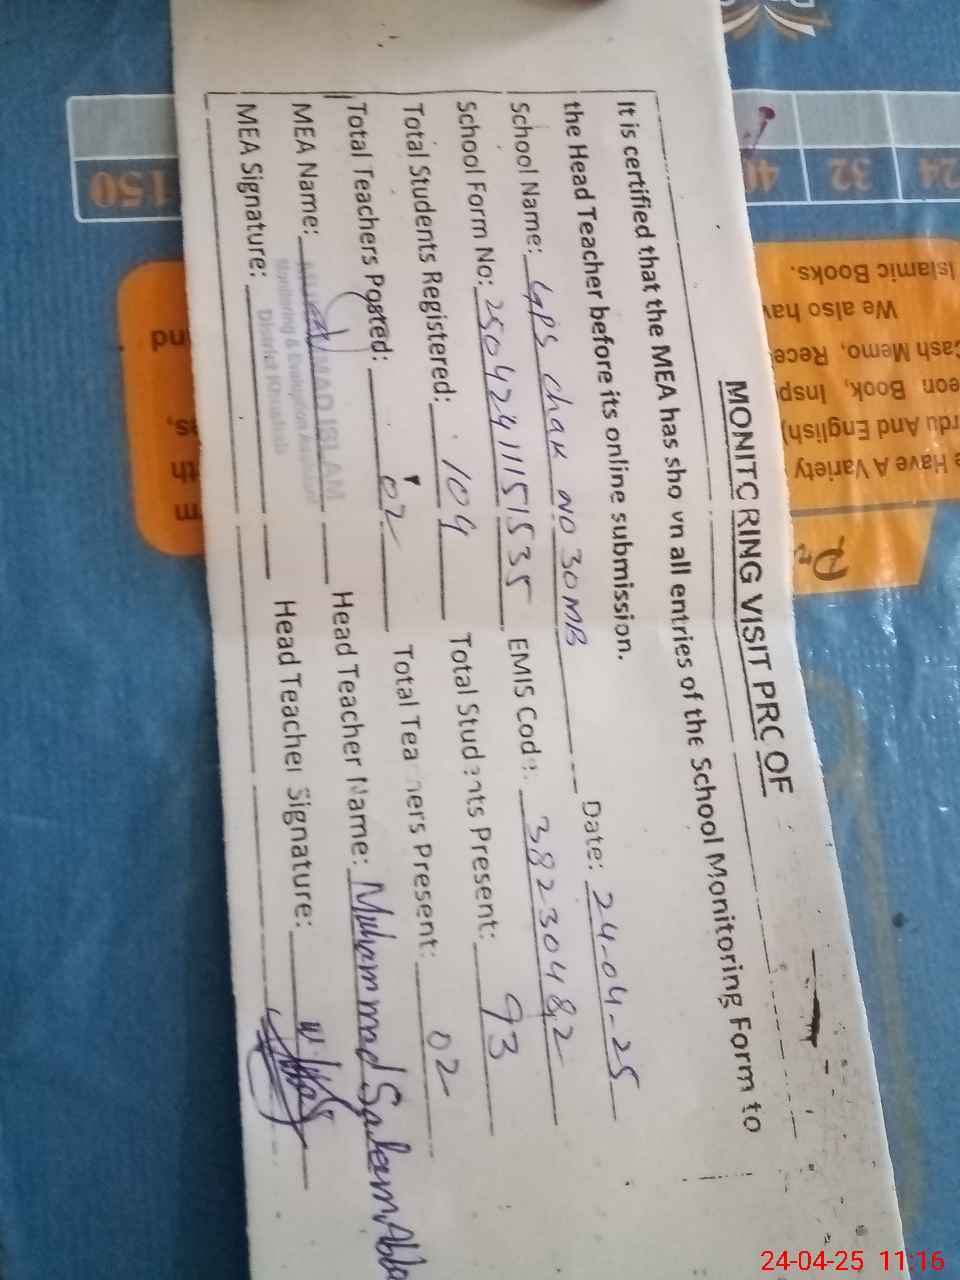 MONITORING VISIT PROOF
It is certified that the MEA has shown all entries of the School Monitoring Form to
the Head Teacher before its online submission.
School Name: GPS chak no 30MB Date: 24-04-25
School Form No: 25042411151535 EMIS Code: 38230482
Total Students Registered: 109 Total Students Present: 93
Total Teachers Posted: 02 Total Teachers Present: 02
MEA Name: MUHAMMAD ISLAM Head Teacher Name: Muhammad Saleem Abba
Monitoring & Evaluation Assistant
District Khushab
MEA Signature: Head Teacher Signature:
24 32 40
150
We Have A Variety
rdu And English)
eon Book, Insp
Cash Memo, Rece
We also hav
Islamic Books.
24-04-25 11:16